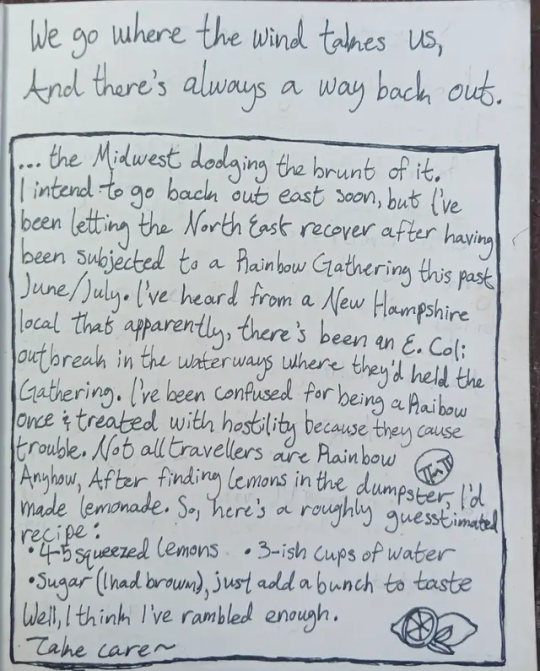 We go where the wind takes us,
And there's always a way back out.
... the Midwest dodging the brunt of it.
I intend to go back out east soon, but I've
been letting the North East recover after having
been subjected to a Rainbow Gathering this past
June/July. I've heard from a New Hampshire
local that apparently, there's been an E. Coli
outbreak in the waterways where they'd held the
Gathering. I've been confused for being a Raibow
once & treated with hostility because they cause
trouble. Not all travellers are Rainbow
Anyhow, After finding lemons in the dumpster, I'd
made lemonade. So, here's a roughly guesstimated
recipe:
• 4-5 squeezed lemons • 3-ish cups of water
• Sugar (I had brown), just add a bunch to taste
Well, I think I've rambled enough.
Take care~